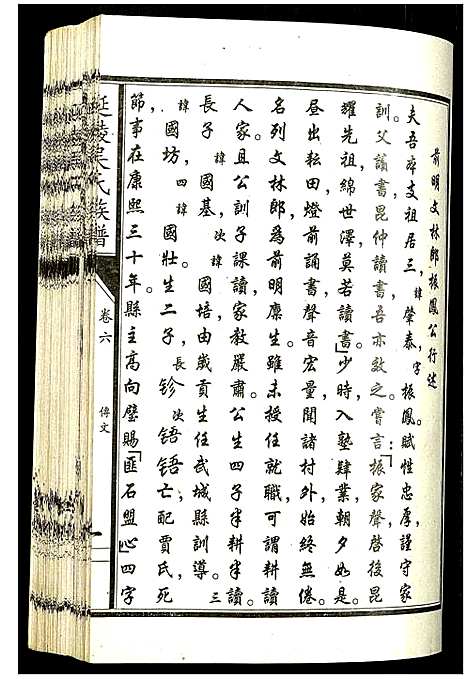 前明文林郎振鳳公行述
夫吾本支祖居三，諱肇泰，字振鳳。賦性忠厚，謹守家
訓。父讀書，昆仲讀書，吾亦效之。嘗言：「振家聲啓後昆，
耀先祖，綿世澤，莫若讀書」。少時入塾肆業，朝夕如是。
晝出耘田，燈前誦書，聲音宏量，聞諸村外，始終無倦。
名列文林郎，為前明廩生。雖未授任就職，可謂耕讀
人家。且公訓子課讀，家教嚴肅。公生四子，半耕半讀。
長子諱國基，次諱國培，由歲貢生任武城縣訓導。三
諱國坊，四諱國壯。生二子，長鉁，次鋙。鋙亡，配賈氏，死
節事在康熙三十年。縣主高向璧賜「匪石盟心」四字
延陵吳氏族譜
卷六
傳文